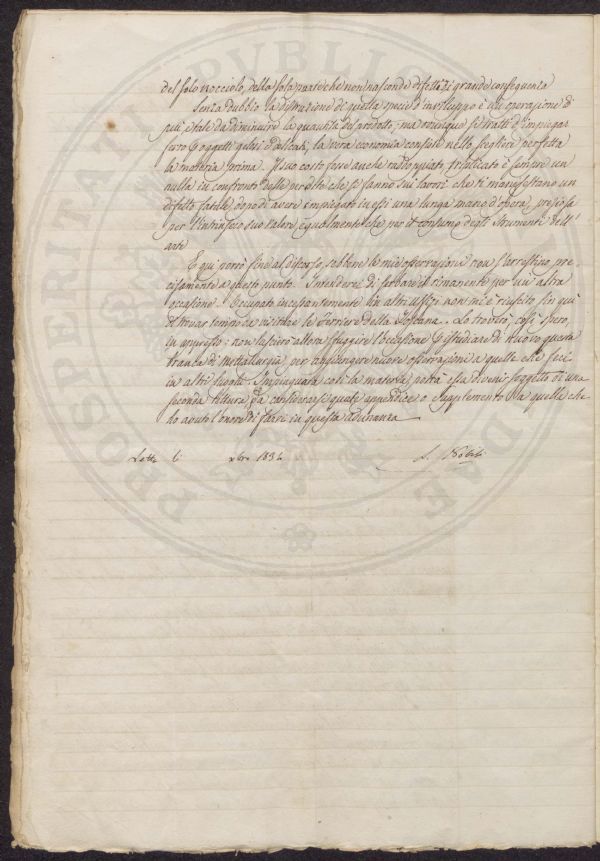 del solo nocciolo, della sola parte che non nasconde difetti di grande conseguenza
Senza dubbio la distruzione di quella specie d'inviluppo è un'operazione di
più e tale da diminuire la quantità del prodotto; ma ovunque si tratti d'impiegar
ferro per oggetti gelosi e dilicati, la vera economia consiste nello scegliere perfetta
la materia prima. Il suo costo fosse anche raddoppiato, triplicato è sempre un
nulla in confronto delle perdite che si fanno sui lavori che ti manifestano un
difetto fatale dopo di avere impiegato in essi una lunga mano d'opera, preziosa
per l'intrinseco suo valore, egualmente che per il consumo degli strumenti dell'
arte
E qui porrò fine al discorso, sebbene le mie osservazioni non s'arrestino pre-
cisamente a questo punto. Intenderei di serbare il rimanente per un'altra
occasione. Occupato incessantemente in altri uffizi non mi è riuscito fin qui
di trovar tempo da visitare le Ferriere della Toscana. Lo troverò, così spero,
in appresso: non lascierò allora sfuggire l'occasione di studiare di nuovo questa
branca di Metallurgia, per aggiungere nuove osservazioni a quelle che feci
in altri luoghi. Impinguata così la materia, potrà essa divenir soggetto di una
seconda lettura, da considerarsi quale appendice o supplemento a quella che
ho avuto l'onore di farvi in questa adunanza
Letta 6 xbre 1834 L. Nobili
PROSPERITATI PVBLICAE